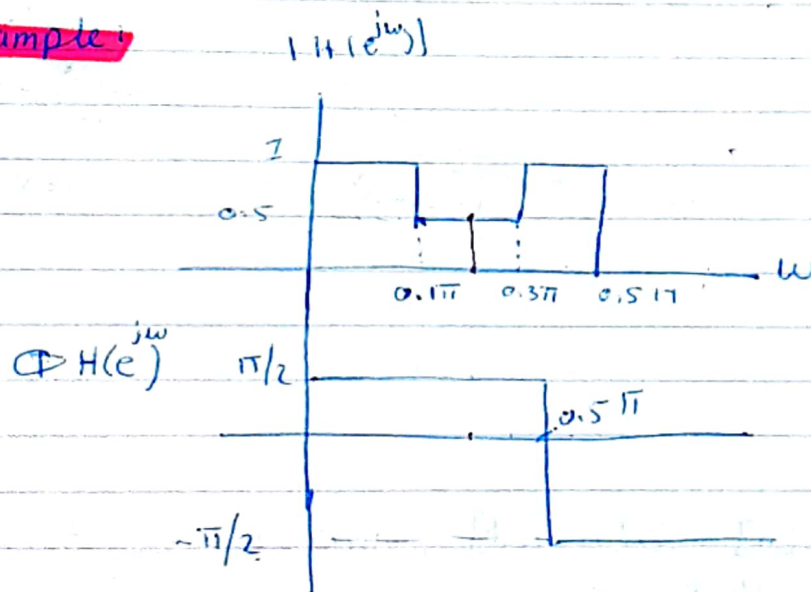 ample:
|H(e^jω)|
1
0.5
0.1π 0.3π 0.5π
ω
H(e^jω)
π/2
0.5π
-π/2